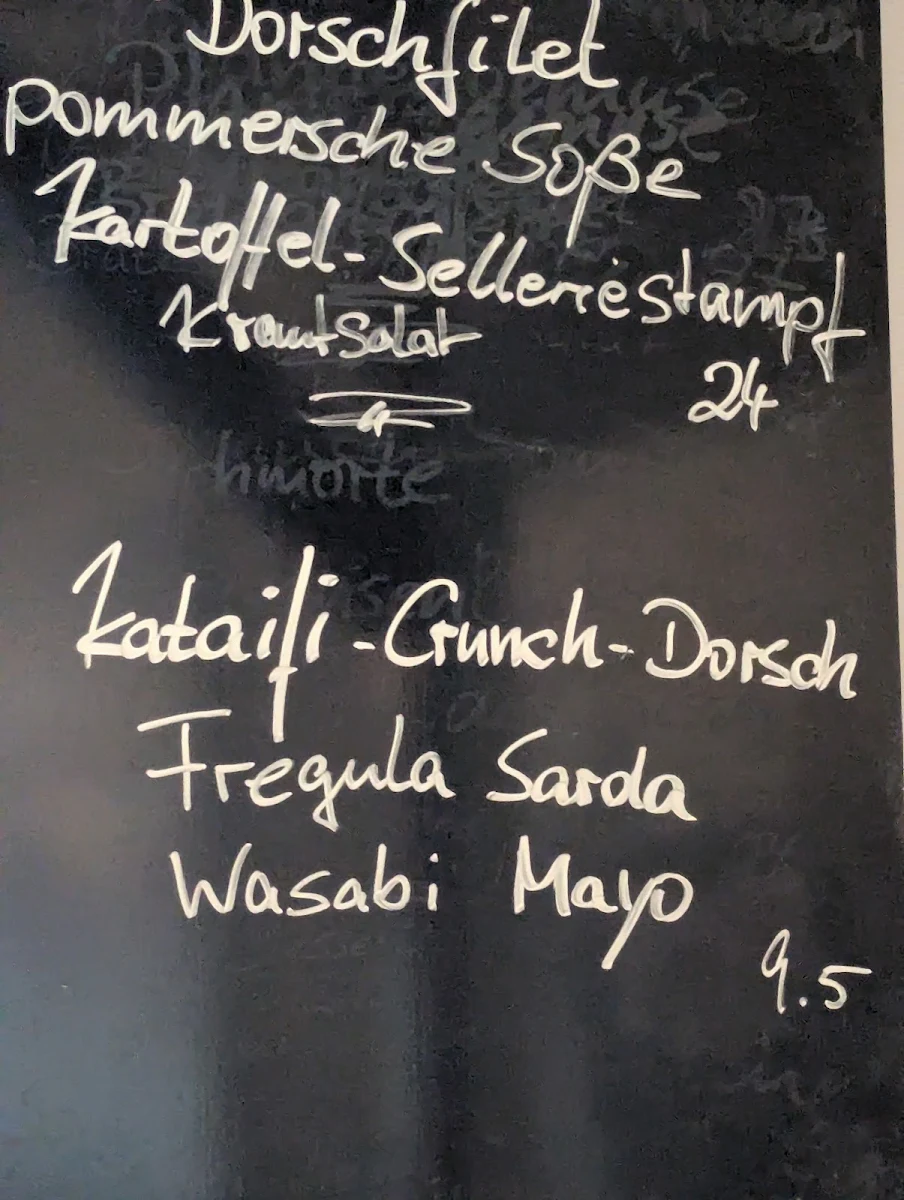 Dorschfilet
pommersche Soße
Kartoffel-Selleriestampf
Krautsalat
24
Kataifi-Crunch-Dorsch
Fregula Sarda
Wasabi Mayo
9.5